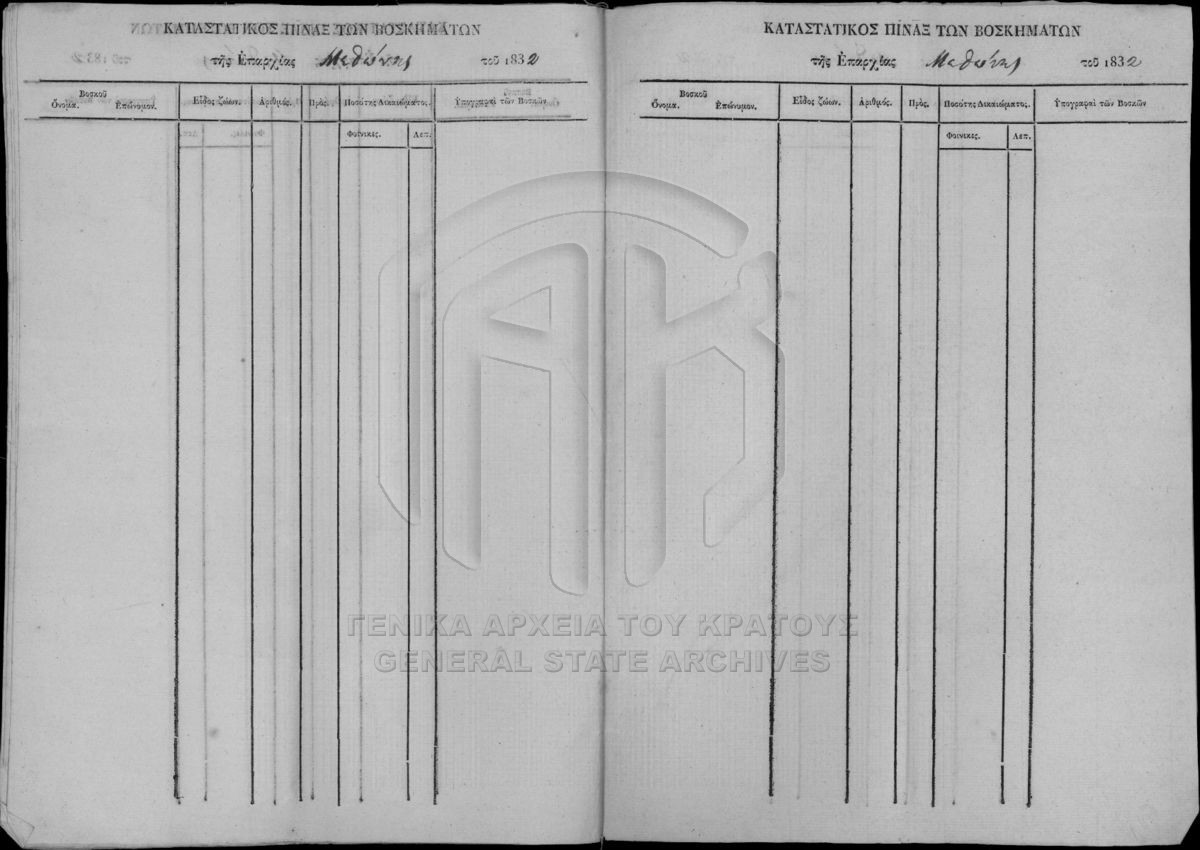 ΚΑΤΑΣΤΑΤΙΚΟΣ ΠΙΝΑΞ ΤΩΝ ΒΟΣΚΗΜΑΤΩΝ
τῆς Ἐπαρχίας Μεθώνης τοῦ 1832
Βοσκοῦ
Ὄνομα. Ἐπώνυμον. Εἶδος ζώων. Ἀριθμός. Πρὸς. Ποσότης Δικαιώματος. Ὑπογραφαὶ τῶν Βοσκῶν
Φοίνικες. Λεπ.
ΚΑΤΑΣΤΑΤΙΚΟΣ ΠΙΝΑΞ ΤΩΝ ΒΟΣΚΗΜΑΤΩΝ
τῆς Ἐπαρχίας Μεθώνης τοῦ 1832
Βοσκοῦ
Ὄνομα. Ἐπώνυμον. Εἶδος ζώων. Ἀριθμός. Πρὸς. Ποσότης Δικαιώματος. Ὑπογραφαὶ τῶν Βοσκῶν
Φοίνικες. Λεπ.
ΓΕΝΙΚΑ ΑΡΧΕΙΑ ΤΟΥ ΚΡΑΤΟΥΣ
GENERAL STATE ARCHIVES